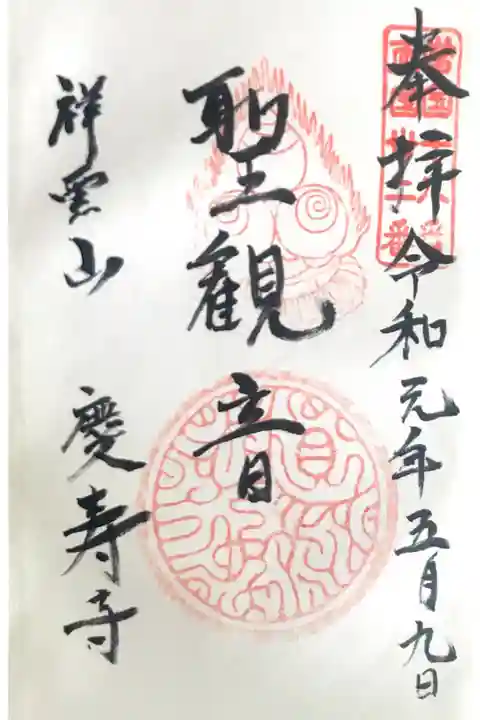 奉拝令和元年五月九日
聖観音
祥雲山 慶寿寺